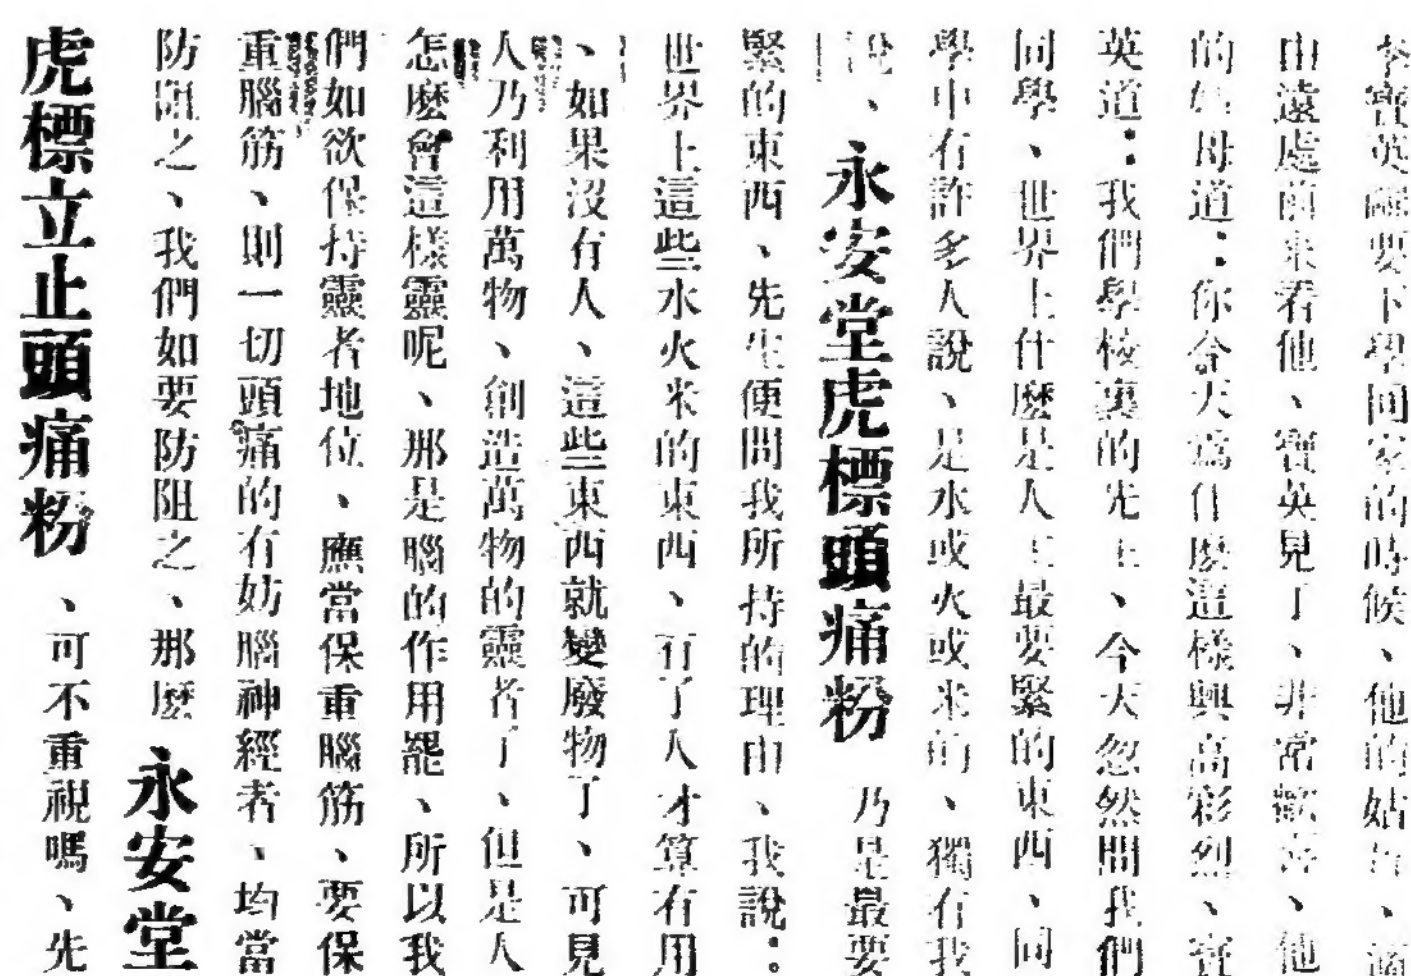 李寶英離要下學回家的時候、他的姑母、適
由遠處前來看他、寶英見了、非常歡喜、他
的姑母道：你今天為什麼這樣興高彩烈、寶
英道：我們學校裏的先生、今天忽然問我們
同學、世界上什麼是人生最要緊的東西、同
學中有許多人說、是水或火或米的、獨有我
說、永安堂虎標頭痛粉 乃是最要
緊的東西、先生便問我所持的理由、我說：
世界上這些水火米的東西、有了人才算有用
、如果沒有人、這些東西就變廢物了、可見
人乃利用萬物、創造萬物的靈者了、但是人
怎麼會這樣靈呢、那是腦的作用罷、所以我
們如欲保持靈者地位、應當保重腦筋、要保
重腦筋、則一切頭痛的有妨腦神經者、均當
防阻之、我們如要防阻之、那麼 永安堂
虎標立止頭痛粉、可不重視嗎、先